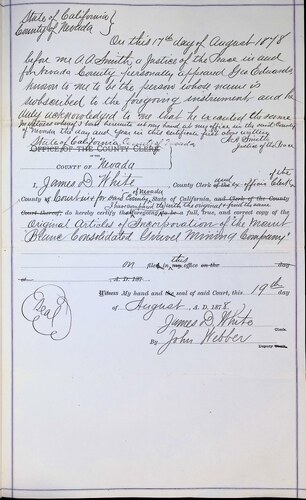 State of California }
County of Nevada }
On this 17th day of August 1878
before me A.D. Smith, a Justice of the Peace in and
for Nevada County personally appeared Geo Edwards
known to me to be the person whose name is
subscribed to the foregoing instrument and he
duly acknowledged to me that he executed the same
In witness whereof I have hereunto set my hand at my office in the said County
of Nevada the day and year in this certificate first above written
A D Smith
Justice of the Peace
State of California County of Nevada
OFFICE OF THE COUNTY CLERK
COUNTY OF Nevada
I, James D. White, County Clerk and ex officio Clerk of the
County Court in & for said County of Nevada, State of California, and Clerk of the County
Court thereof, do hereby certify that the foregoing to be a full, true, and correct copy of the
Original Articles of Incorporation of the Mount
Blanc Consolidated Gravel Mining Company"
on this filed in my office on the day
A. D. 187
Witness My hand and the seal of said Court, this 19th day
of August, A. D. 1878
Seal
James D. White
Clerk.
By John Webber
Deputy Clerk